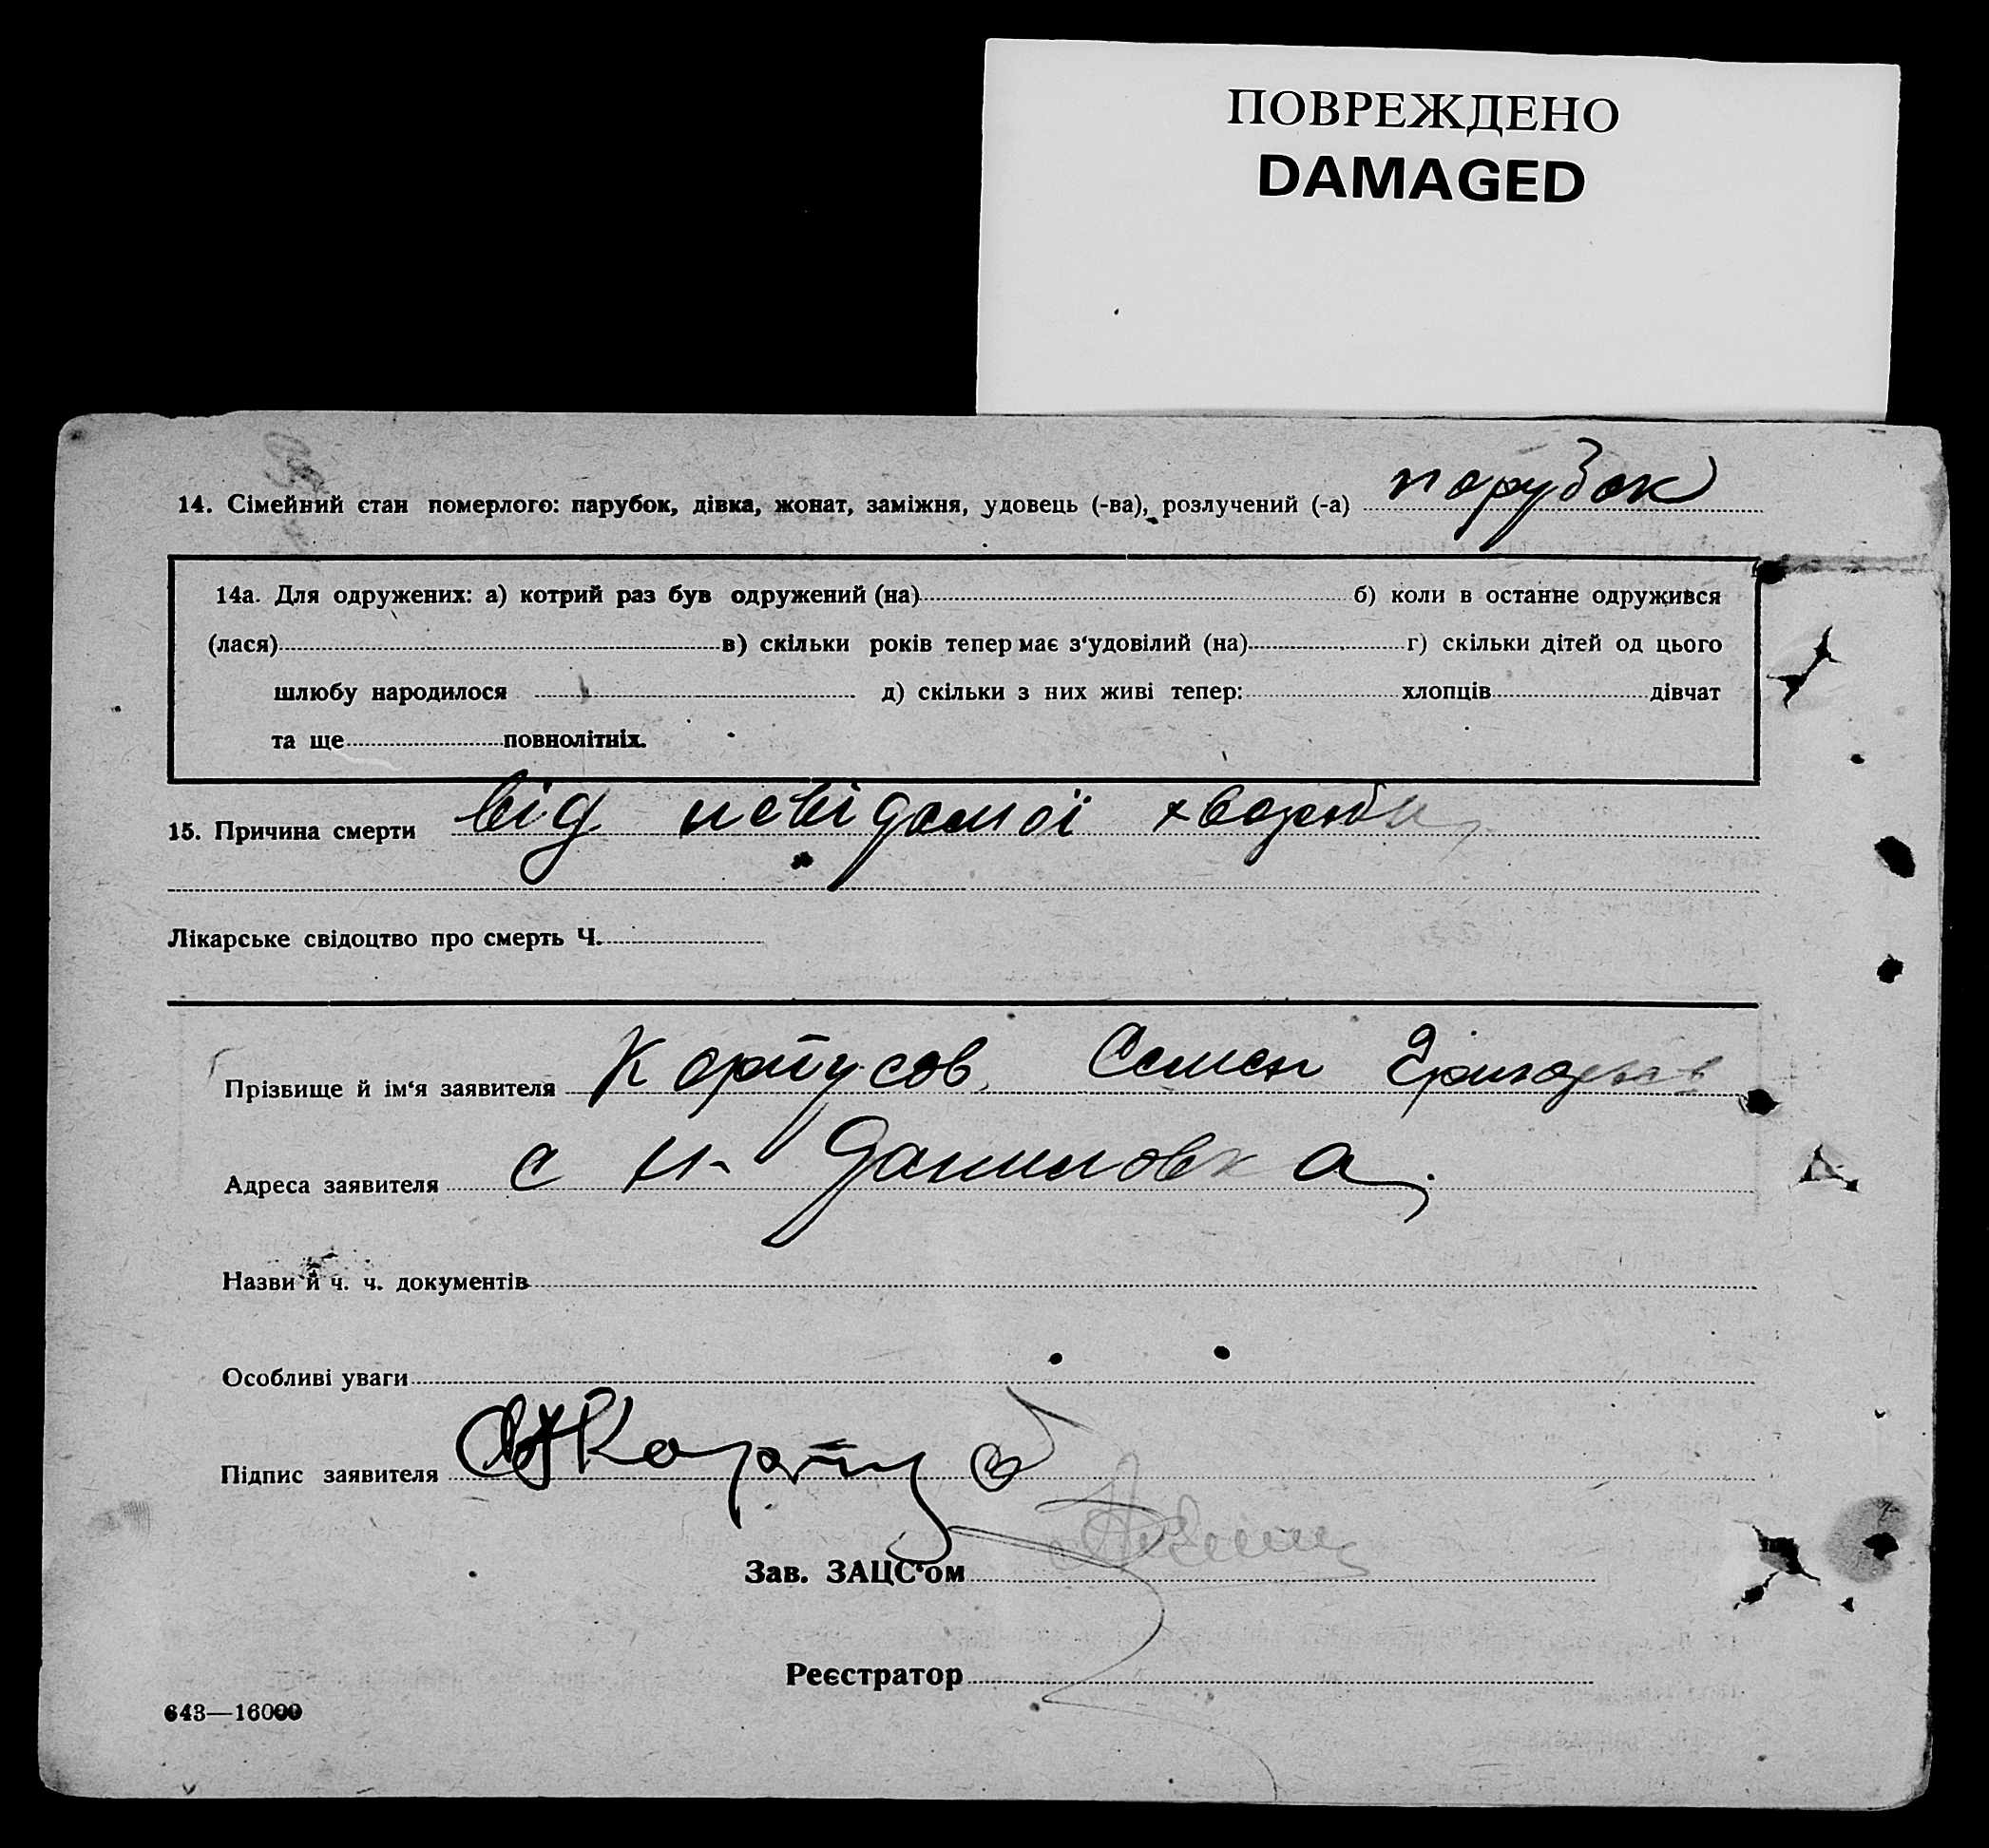 ПОВРЕЖДЕНО
DAMAGED
14. Сімейний стан померлого: парубок, дівка, жонат, заміжня, удовець (-ва), розлучений (-а) парубок
14а. Для одружених: а) котрий раз був одружений (на) б) коли в останне одружився
(лася) в) скільки років тепер має з‘удовілий (на) г) скільки дітей од цього
шлюбу народилося д) скільки з них живі тепер: хлопців дівчат
та ще повнолітніх.
15. Причина смерти від невідомої хворобы
Лікарське свідоцтво про смерть Ч.
Прізвище й ім‘я заявителя Семен
Адреса заявителя с Н- Даниловка
Назви й ч. ч. документів
Особливі уваги
Підпис заявителя
Зав. ЗАЦС‘ом
Реєстратор
643—16000